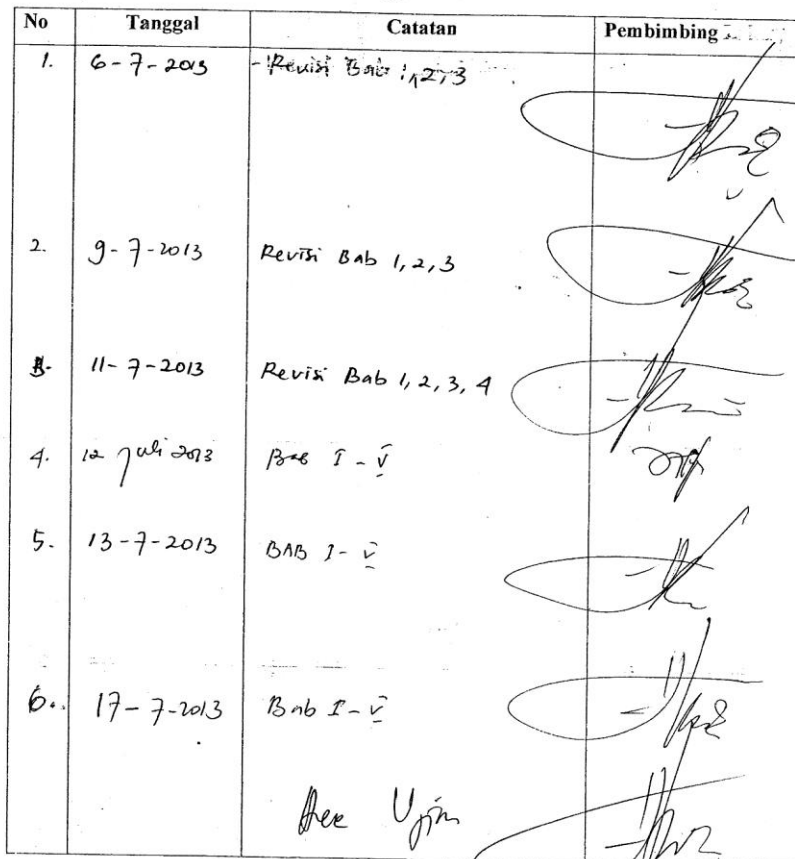 No Tanggal Catatan Pembimbing
1. 6-7-2013 - Revisi Bab 1,2,3
2. 9-7-2013 Revisi Bab 1,2,3
3. 11-7-2013 Revisi Bab 1,2,3,4
4. 12 Juli 2013 Bab I - V
5. 13-7-2013 BAB I - V
6. 17-7-2013 Bab I - V
Acc Ujian